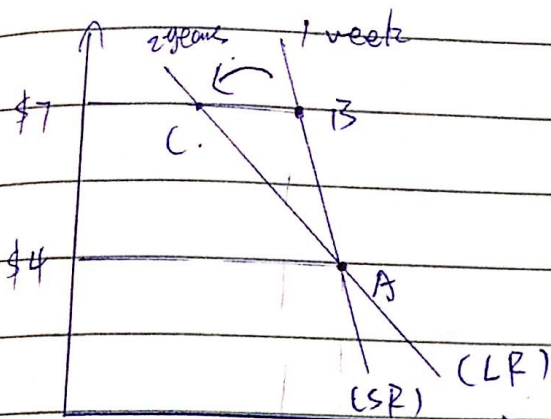 2 years 1 week
$7 B
C.
$4
A
(LR)
(SR)